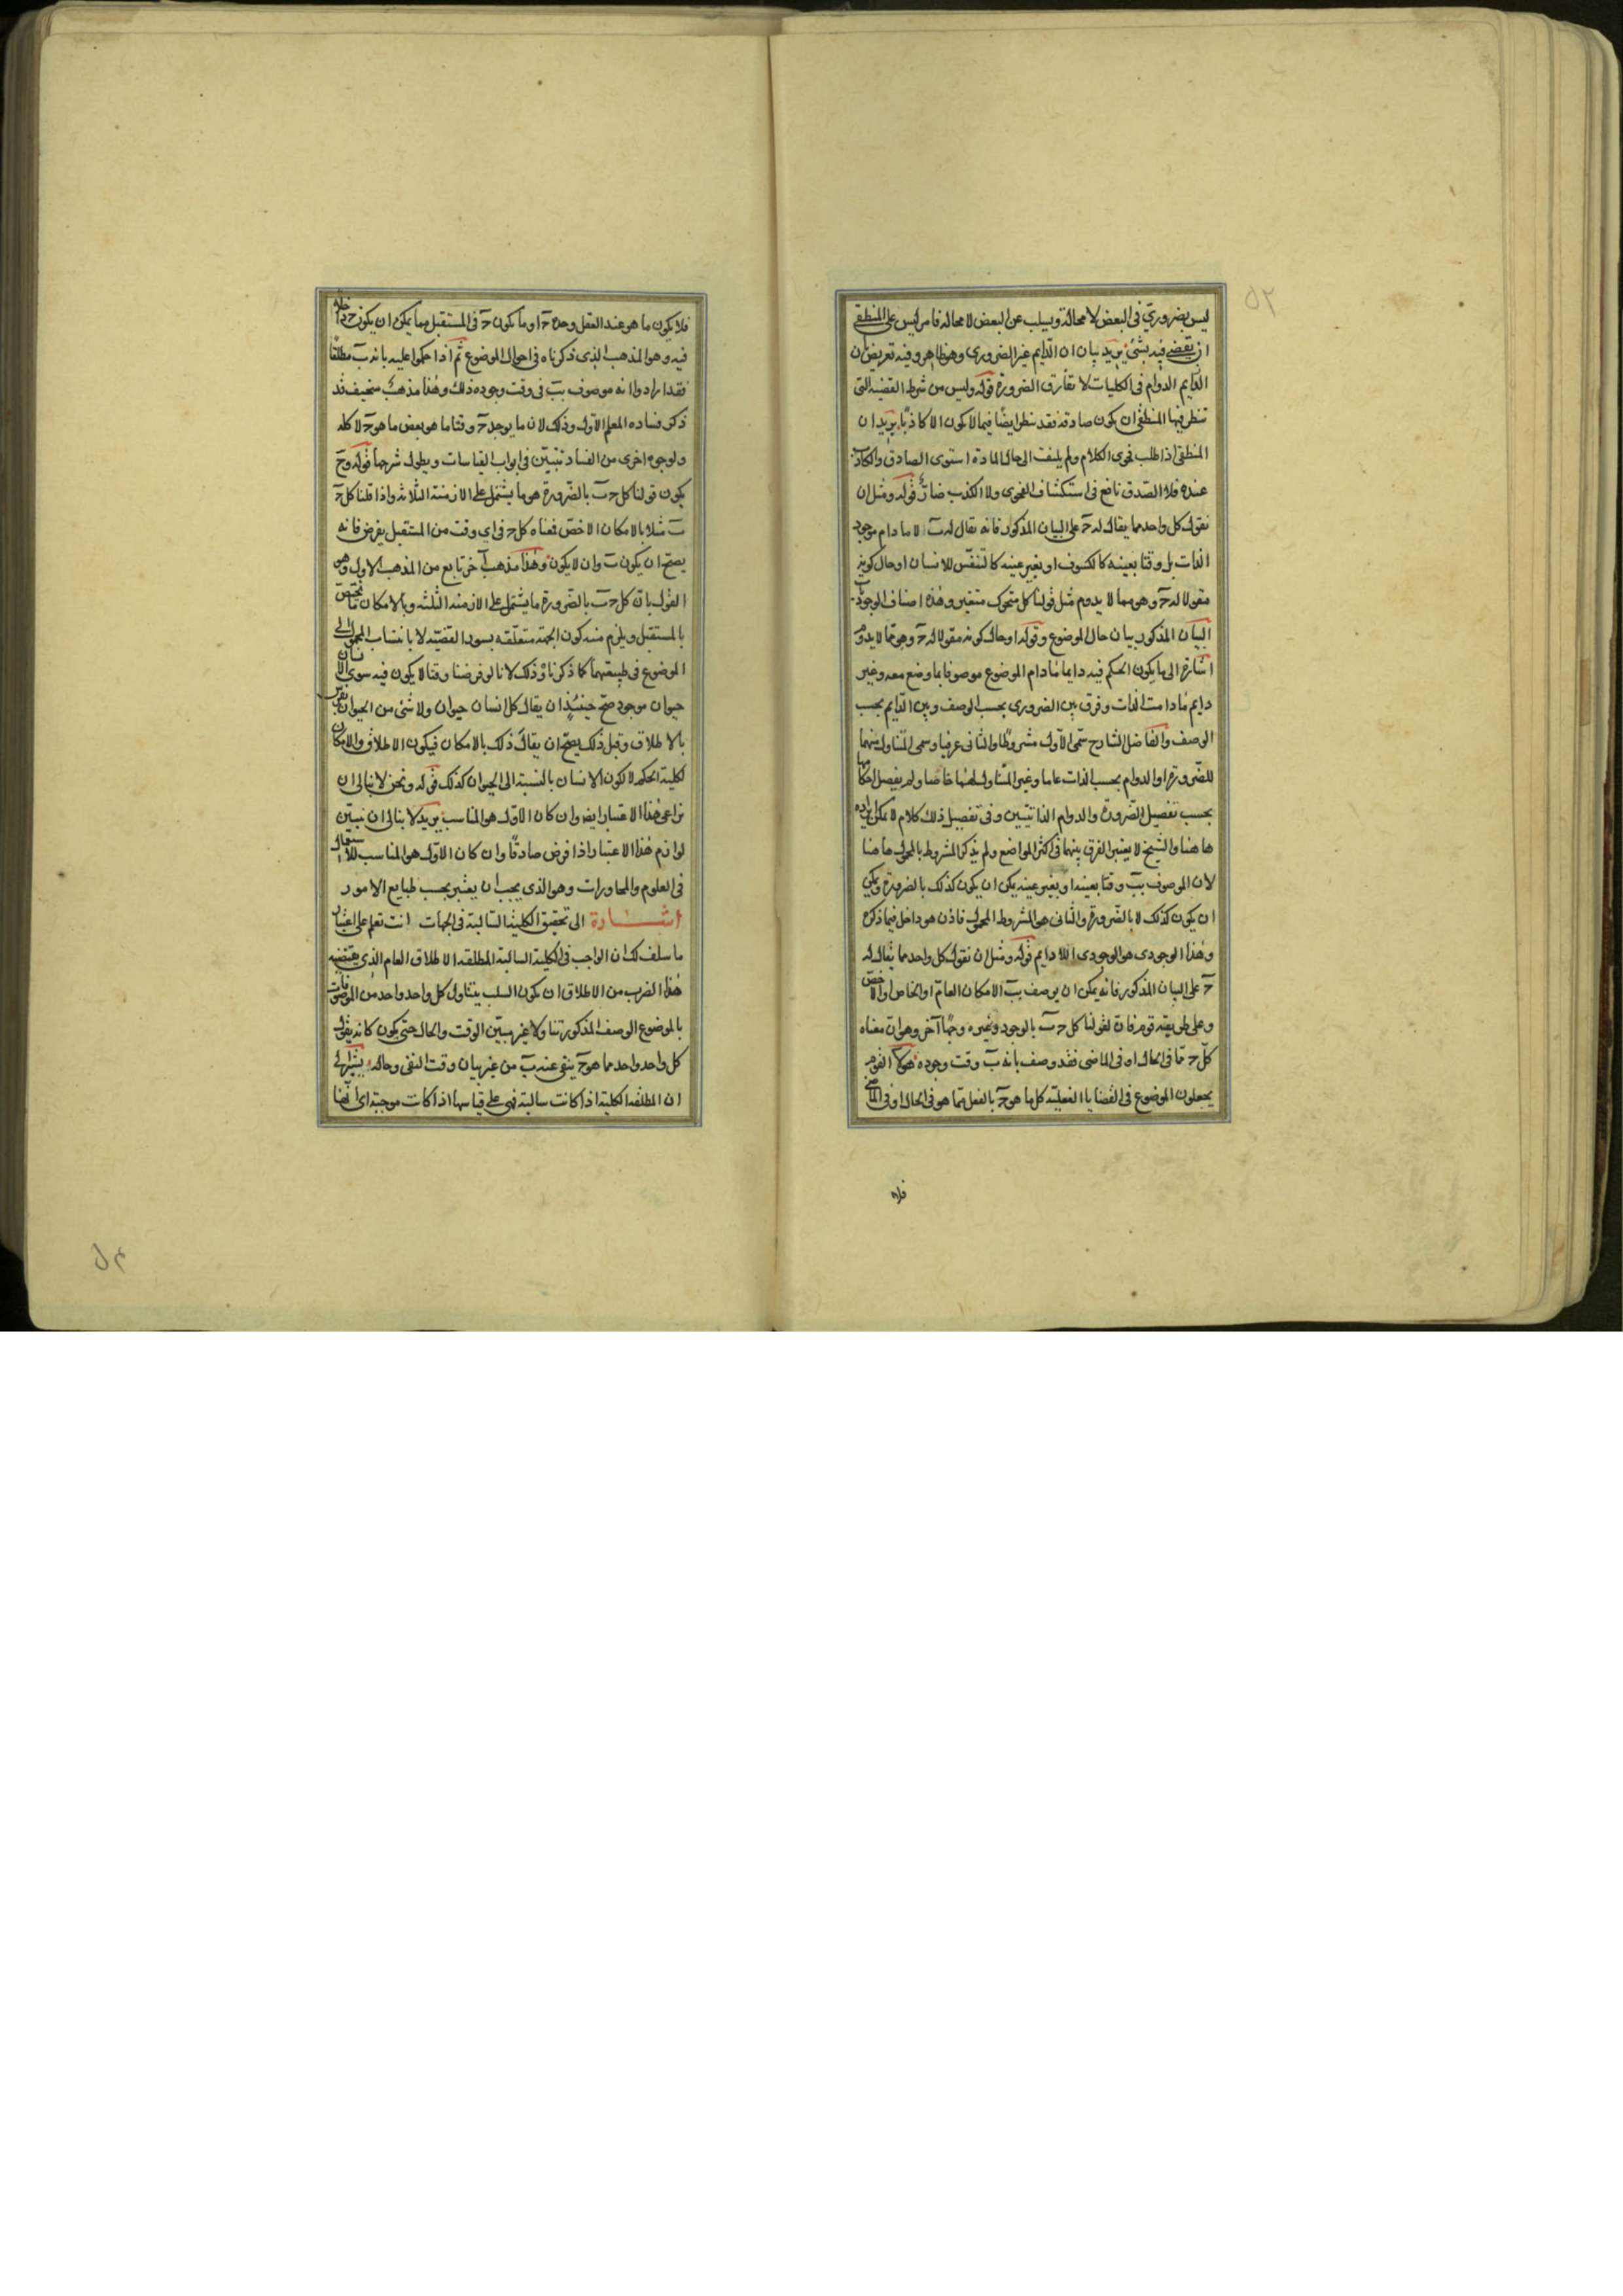 ليس بضروري في البعض لا محالة ويسلب عن البعض لا محالة فامر ليس على المنطقي
ان يقضى فيه بشئ يريد بيان ان الدايم غير الضروري وهو ظاهر وفيه تعريض بان
القايم الدوام في الكليات لا يفارق الضرورة قوله وليس من شرط القضية التي
تنظر فيها المنطقي ان يكون صادقة فقد ينظر ايضا فيما لا يكون الا كاذبا يريد ان
المنطقي اذا طلب فحوى الكلام ولم يلتفت الى حال المادة استوى الصادق والكاذب
عنده فلا الصدق نافع في استكشاف الفحوى ولا الكذب ضار قوله ومثل ان
نقول كل واحد مما يقال له حـ على البيان المذكور فانه يقال له ب لا ما دام موجود
الذات بل وقتا بعينه كالكسوف او بغير عينه كالتنفس للانسان او حال كونه
مقولا له حـ وهو مما لا يدوم مثل قولنا كل متحرك متغير وهذه اصناف الوجوديات
البيان المذكور بيان حال الموضوع وقوله او حال كونه مقولا له حـ وهو مما لا يدوم
اشارة الى ما يكون الحكم فيه دايما ما دام الموضوع موصوفا بما وضع معه وغير
دايم ما دامت الذات وفرق بين الضروري بحسب الوصف وبين الدايم بحسب
الوصف والفاضل الشارح سمى الاول مشروطا والثاني عرفيا وسمى المتناول منهما
للضرورة او الدوام بحسب الذات عاما وغير المتناول لهما خاصا ولم يفصل احكامها
بحسب تفصيل الضرورة والدوام الذاتيين وفي تفصيل ذلك كلام لا يمكن ايراده
هاهنا والشيخ لا يعتبر الفرق بينهما في اكثر المواضع ولم يذكر المشروط بالمحمول هاهنا
لان الموصوف بب وقتا بعينه او بغير عينه يمكن ان يكون كذلك بالضرورة ويمكن
ان يكون كذلك لا بالضرورة والثاني هو المشروط المحمول فاذن هو داخل فيما ذكره
وهذا الوجودي هو الوجودي اللادايم قوله ومثل ان نقول كل واحد مما يقال له
حـ على البيان المذكور فانه يمكن ان يوصف بب الامكان العام او الخاص او الاخص
وعلى طريقة قوم فان لقولنا كل حـ ب بالوجود وغيره وجها آخر وهو ان معناه
كل حـ مما في الحال او في الماضي فقد وصف بانه ب وقت وجوده هولاء القوم
يجعلون الموضوع في القضايا الفعلية كل ما هو حـ بالفعل مما هو في الحال او في الماضي
فلا
فلا يكون ما هو عند العقل وحده حـ او ما يكون حـ في المستقبل مما يمكن ان يكون حـ داخلا
فيه وهو المذهب الذي ذكرناه في احوال الموضوع ثم اذا حكموا عليه بانه ب مطلقا
فقد ارادوا انه موصوف بب في وقت وجوده ذلك وهذا مذهب سخيف قد
ذكر فساده المعلم الاول وذلك لان ما يوجد حـ وقتا ما هو بعض ما هو حـ لا كله
ولوجوه اخرى من الفساد تتبين في ابواب القياسات ويطول شرحها قوله وح
يكون قولنا كل حـ ب بالضرورة هو ما يشتمل على الازمنة الثلاثة واذا قلنا كل حـ
ب مثلا بالامكان الاخص فمعناه كل حـ في اي وقت من المستقبل يفرض فانه
يصح ان يكون ب وان لا يكون وهذا مذهب آخر تابع من المذهب الاول وهو
القول بان كل حـ ب بالضرورة ما يشتمل على الازمنة الثلثة وبالامكان ما يختص
بالمستقبل ويلزم منه كون الجهة متعلقة بسور القضية لا بانتساب المحمول الى
الموضوع في طبيعتهما كما ذكرنا وذلك لانا لو فرضنا وقتا لا يكون فيه سوى الانسان
حيوان موجود صح حينئذ ان يقال كل انسان حيوان ولا شئ من الحيوان بفرس
بالاطلاق وقبل ذلك يصح ان يقال ذلك بالامكان فيكون الاطلاق والامكان
لكلية الحكم لا لكون الانسان بالنسبة الى الحيوان كذلك قوله ونحن لا نبالي ان
نراعي هذا الاعتبار ايضا وان كان الاول هو المناسب يريد لا نبالي ان نبين
لوازم هذا الاعتبار اذا فرض صادقا وان كان الاول هو المناسب للاستعمال
في العلوم والمحاورات وهو الذي يجب ان يعتبر بحسب طبايع الامور
اشارة الى تحقيق الكلية السالبة في الجهات انت تعلم على اعتبار
ما سلف لك ان الواجب في الكلية السالبة المطلقة الاطلاق العام الذي يقتضيه
هذا الضرب من الاطلاق ان يكون السلب يتناول كل واحد واحد من الموصوفات
بالموضوع الوصف المذكور تناولا غير مبين الوقت والحال حتى يكون كانه يقول
كل واحد واحد مما هو حـ ينفي عنه ب من غير بيان وقت النفي وحاله يشير الى
ان المطلقة الكلية اذا كانت سالبة فهي على قياسها اذا كانت موجبة اي انها